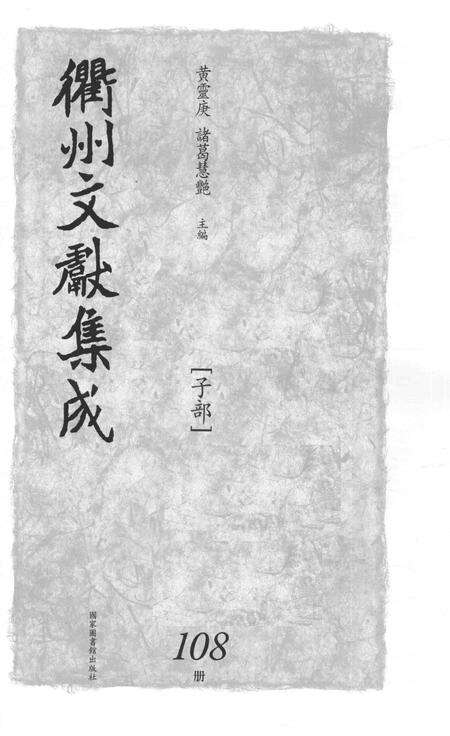 衢州文獻集成
黃靈庚 諸葛慧艷 主編
[子部]
108
册
國家圖書館出版社